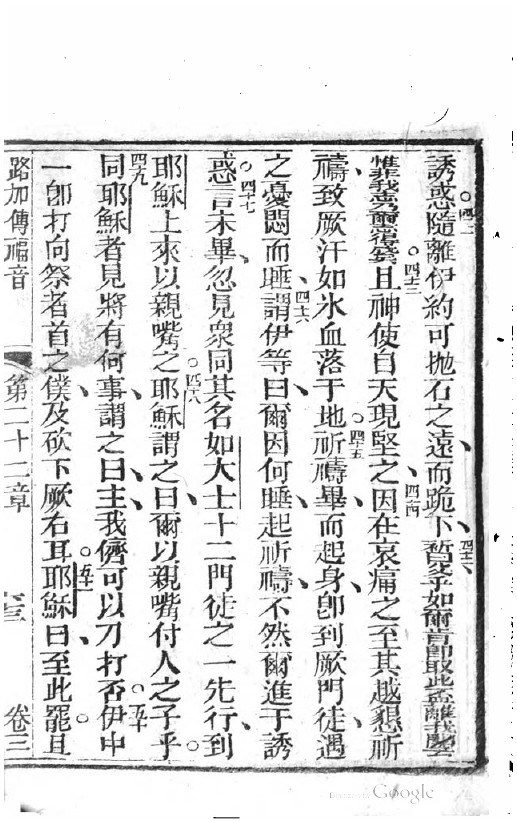 誘惑。四一隨離伊約可抛石之遠、而跪下、四二如爾肯卽取此盃離我
惟非我爾。四三且神使自天現堅之、四四因在哀痛之至其越懇祈
禱、致厥汗如氷血落于地。四五祈禱畢、而起身卽到厥門徒、遇
之憂悶而睡、四六謂伊等曰、爾因何睡、起祈禱、不然爾進于誘
惑。四七言未畢、忽見衆同其名如大士十二門徒之一先行、到
耶穌上來以親嘴之。四八耶穌謂之曰、爾以親嘴付人之子乎。
四九同耶穌者見將有何事、謂之曰、主、我儕可以刀打否。五十伊中
一卽打向祭者首之僕、及砍下厥右耳。五一耶穌曰、至此罷。且
路加傳福音 第二十二章 六三 卷三
Digitized by Google